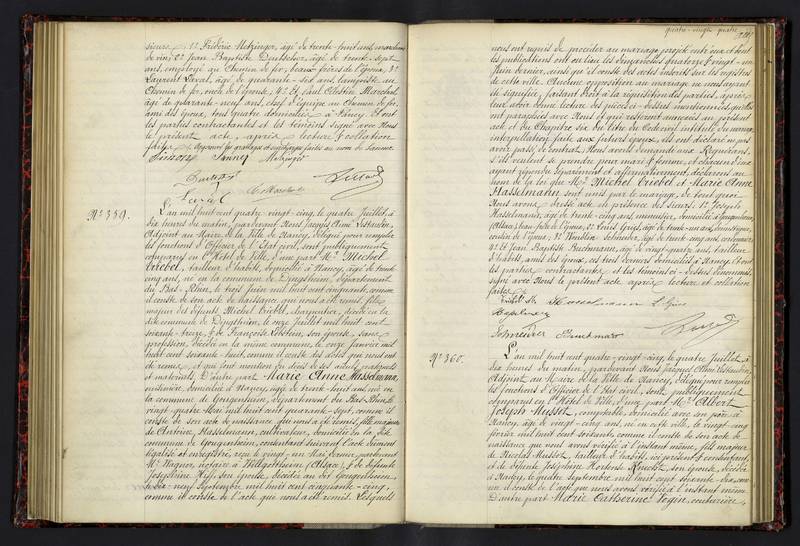 sieurs 1° Frédéric Metzinger, âgé de trente-huit ans, marchand
de vin; 2° Jean Baptiste Deutscher, âgé de trente-sept
ans, employé au Chemin de fer, beaux-frères de l'époux; 3°
Laurent Laval, âgé de quarante-six ans, lampiste au
Chemin de fer, oncle de l'épouse; 4° Et Paul Célestin Marchal,
âgé de quarante-neuf ans, chef d'équipe au Chemin de fer,
ami des époux, tous quatre domiciliés à Nancy. Et ont
les parties contractantes et les témoins signé avec Nous
le présent acte, après lecture & collation
faites.
Metzinger
Laval
N° 359.
L'an mil huit cent quatre-vingt-cinq, le quatre Juillet, à
dix heures du matin, pardevant Nous Jacques Aimé
Adjoint au Maire de la Ville de Nancy, délégué pour remplir
les fonctions d'Officier de l'Etat civil, sont publiquement
comparus en l'Hôtel de Ville, d'une part Mr. Michel
Criebel, tailleur d'habits, domicilié à Nancy, âgé de trente
cinq ans, né en la commune de Dingsheim, département
du Bas-Rhin, le trois Juin mil huit cent cinquante, comme
il conste de son acte de naissance, qui nous a été remis, fils
majeur des défunts Michel Criebel, charpentier, décédé en la
dite commune de Dingsheim, le onze Juillet mil huit cent
soixante-treize, & de Françoise son épouse, sans
profession, décédée en la même commune, le onze Janvier mil
huit cent soixante-huit, comme il conste des actes qui nous ont
été remis, et qui font mention du décès de ses aïeuls paternels
et maternels. D'autre part Marie Anne Hasselmann,
cuisinière, domiciliée à Nancy, âgée de trente-huit ans, née en
la commune de Gougenheim, département du Bas-Rhin, le
vingt-quatre Mai mil huit cent quarante-sept, comme il
conste de son acte de naissance, qui nous a été remis, fille majeure
de Antoine Hasselmann, cultivateur, domicilié en la dite
commune de Gougenheim, consentant suivant l'acte dûment
légalisé et enregistré, reçu le vingt-un Mai dernier, pardevant
Me Wagner, notaire à Willgottheim (Alsace), & de défunte
Joséphine son épouse, décédée au dit Gougenheim,
le dix-neuf Septembre mil huit cent cinquante-cinq,
comme il conste de l'acte qui nous a été remis. Lesquels
quatre-vingt-quatre
nous ont requis de procéder au mariage projeté entr'eux et dont
les publications ont eu lieu les dimanches quatorze & vingt-un
Juin dernier, ainsi qu'il conste des actes inscrits sur les registres
de cette ville. Aucune opposition au mariage ne nous ayant
été signifiée, faisant droit à la réquisition des parties, après
leur avoir donné lecture des pièces ci-dessus mentionnées, qu'elles
ont paraphées avec Nous et qui resteront annexées au présent
acte et du Chapitre six du titre du Code civil intitulé du mariage,
interpellation faite aux futurs époux, ils ont déclaré ne pas
avoir passé de contrat. Nous avons demandé aux Requérans
s'ils veulent se prendre pour mari & femme, et chacun d'eux
ayant répondu séparément et affirmativement, déclarons au
nom de la loi que Mr. Michel Criebel et Marie Anne
Hasselmann sont unis par le mariage, de tout quoi
Nous avons dressé acte en présence des sieurs 1° Joseph
Hasselmann, âgé de trente-cinq ans, menuisier, domicilié à Gougenheim,
(Alsace), beau-frère de l'époux; 2° Louis âgé de trente-un ans, domestique,
cousin de l'époux; 3° Schneider, âgé de trente-cinq ans, cordonnier
4° Et Jean Baptiste Buchmann, âgé de vingt-quatre ans, tailleur
d'habits, amis des époux, ces trois derniers domiciliés à Nancy. Et ont
les parties contractantes et les témoins ci-dessus dénommés
signé avec Nous le présent acte après lecture et collation
faites.
Hasselmann
Schneider
N° 360.
L'an mil huit cent quatre-vingt-cinq, le quatre Juillet, à
dix heures du matin, pardevant Nous Jacques Aimé
Adjoint au Maire de la Ville de Nancy, délégué pour remplir
les fonctions d'Officier de l'Etat civil, sont publiquement
comparus en l'Hôtel de Ville, d'une part Mr. Albert
Joseph Mussot, comptable, domicilié avec son père à
Nancy, âgé de vingt-cinq ans, né en cette ville, le vingt-cinq
février mil huit cent soixante, comme il conste de son acte de
naissance que nous avons vérifié à l'instant même, fils majeur
de Nicolas Mussot, tailleur d'habits, ici présent & consentant,
et de défunte Joséphine Hortense son épouse, décédée
à Nancy, le quatre Septembre mil huit cent soixante-dix, comme
il conste de l'acte que nous avons vérifié à l'instant même.
D'autre part Marie Catherine Login, couturière,